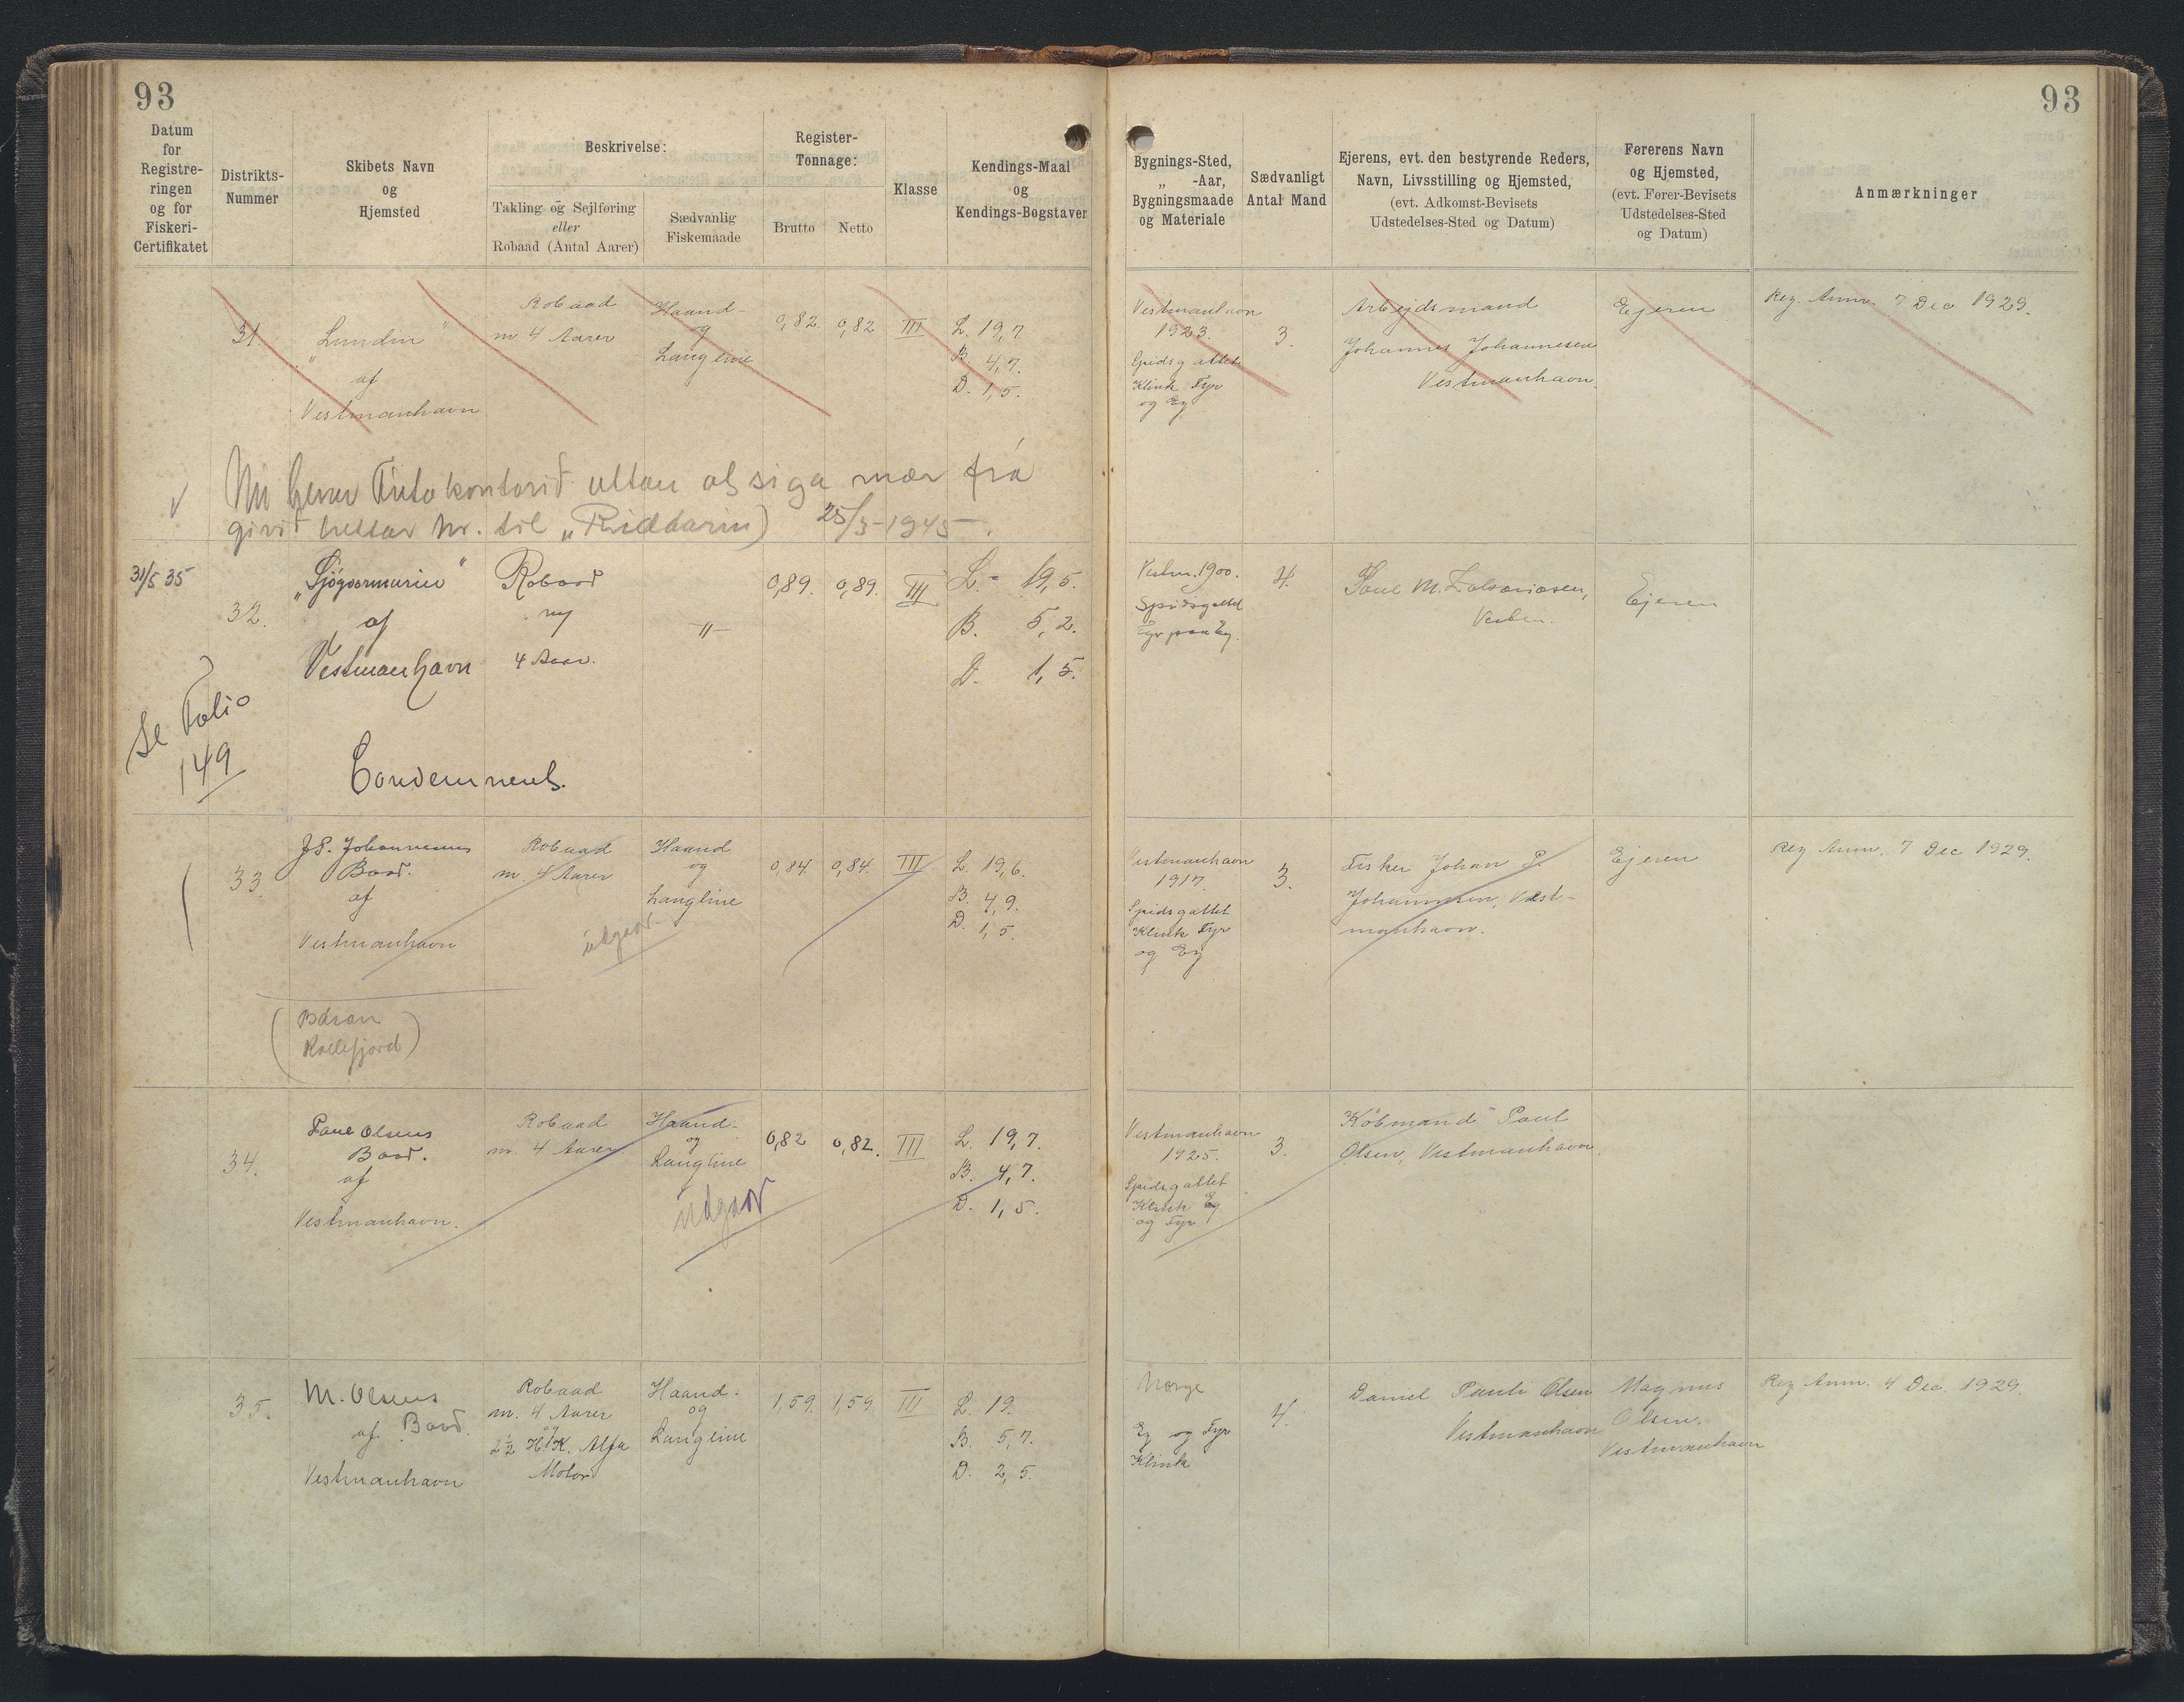 93
93
Datum
for
Registre-
ringen
og for
Fiskeri-
Certifikatet
Distrikts-
Nummer
Skibets Navn
og
Hjemsted
Beskrivelse:
Takling og Sejlføring
eller
Robaad (Antal Aarer)
Sædvanlig
Fiskemaade
Register-
Tonnage:
Brutto
Netto
Klasse
Kendings-Maal
og
Kendings-Bogstaver
Bygnings-Sted,
„ -Aar,
Bygningsmaade
og Materiale
Sædvanligt
Antal Mand
Ejerens, evt. den bestyrende Reders,
Navn, Livsstilling og Hjemsted,
(evt. Adkomst-Bevisets
Udstedelses-Sted og Datum)
Førerens Navn
og Hjemsted,
(evt. Fører-Bevisets
Udstedelses-Sted
og Datum)
Anmærkninger
31.
„Lundin"
af
Vestmanhavn
Robaad
m 4 Aarer
Haand-
og
Langline
0,82. 0,82 III
L. 19,7
B. 4,7.
D. 1,5.
Vestmanhavn
1923.
Spidsgattet
Klink Fyr
og Eg
3.
Arbejdsmand
Johannes Johannesen
Vestmanhavn.
Ejeren
Reg. Anm. 7 Dec 1929.
Nú hevur Fútakontorið uttan at siga mær frá
givið hettar nr. til „Riddarin) 25/3-1945.
31/5 35
32.
af
Vestmanhavn
Robaad
m/
4 Aar.
-"-
0,89. 0,89. III
L. - 19,5.
B. 5,2.
D. 1,5.
Vestm. 1900.
Spidsgattet
Fyr paa Eg.
4.
Poul M.
Ejeren
Se Folio
149
Condemneret.
33.
J.P. Johannesens
Baad.
af
Vestmanhavn
Robaad
m. 4 Aarer
Haand
og
Langline
udgaar
0,84. 0,84. III
L. 19,6.
B. 4,9.
D. 1,5.
Vestmanhavn
1917.
Spidsgattet
Klink Fyr
og Eg
3.
Fisker Johan P.
Johannesen, Vest-
manhavn.
Ejeren
Reg Anm. 7 Dec 1929.
Kollefjord)
34.
Poul Olsens
Baad.
af
Vestmanhavn.
Robaad
m. 4 Aarer
Haand-
og
Langline
udgaar
0,82 0,82. III
L. 19,7.
B. 4,7.
D. 1,5.
Vestmanhavn
1925.
Spidsgattet
Klink Eg
og Fyr
3.
Købmand Poul
Olsen, Vestmanhavn.
35.
M. Olsens
af Baad.
Vestmanhavn
Robaad
m. 4 Aarer
og
2½ H.K. Alfa
Motor
Haand-
og
Langline
1,59. 1,59. III
L. 19.
B. 5,7.
D. 2,5.
Norge
Eg og Fyr
Klink
4.
Daniel Pauli Olsen
Vestmanhavn
Magnus
Olsen,
Vestmanhavn
Reg Anm. 4 Dec. 1929.